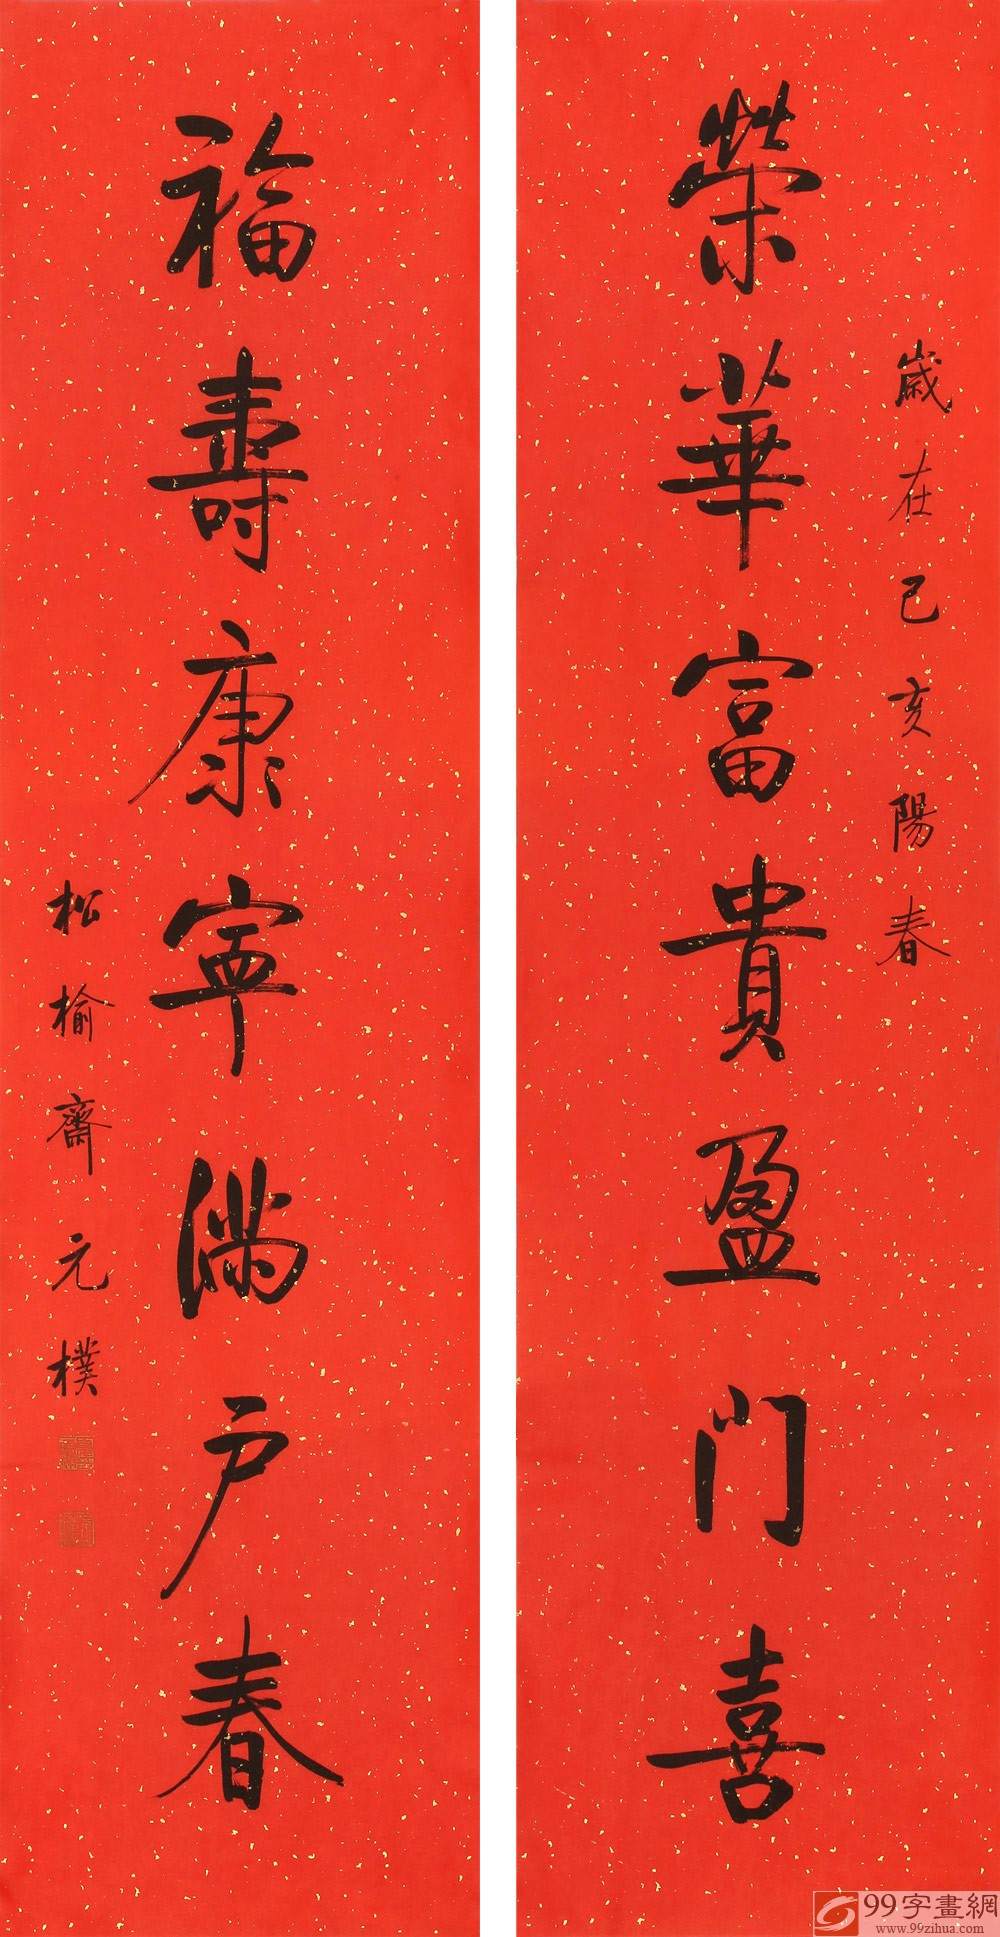 歲在己亥陽春
榮華富貴盈门喜
福壽康寧滿户春
松榆齋元樸
99字畫網
www.99zihua.com